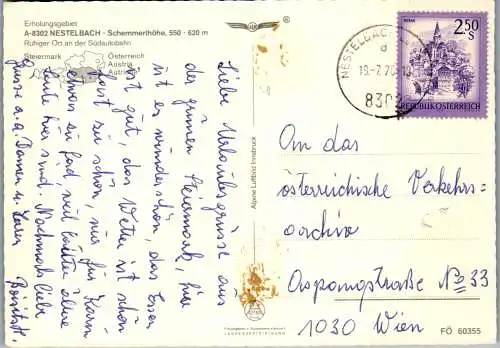 Erholungsgebiet
A-8302 NESTELBACH - Schemmerlhöhe, 550 - 620 m
Ruhiger Ort an der Südautobahn
Steiermark
Österreich
Austria
Autriche
Liebe Urlaubsgrüsse aus
der grünen Steiermark, hier
ist es wunderschön, das Essen
ist gut, das Wetter ist schön
fast zu schön, nur für Karin
etwas zu fad, weil lauter ältere
Leute hier sind. Nochmals liebe
Grüsse a. a. Damen u. Herrn
Alpine Luftbild Innsbruck
NESTELBACH
d
19.-7.76
8302
2.50 S
REPUBLIK ÖSTERREICH
An das
österreichische Verkehrs-
archiv
Aspangstraße No 33
1030 Wien
FÖ 60355